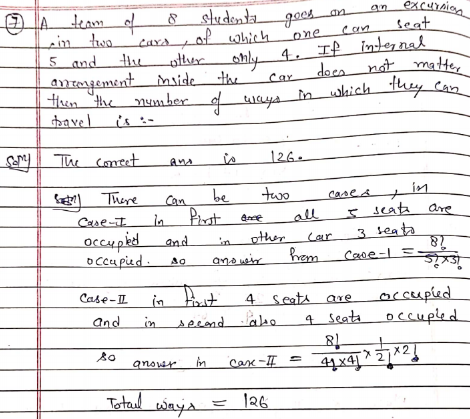 7) A team of 8 students goes on an excursion
in two cars, of which one can seat
5 and the other only 4. If internal
arrangement inside the car does not matter
then the number of ways in which they can
travel is :-
Solⁿ] The correct ans is 126.
There can be two cases, in
Case-I in first all 5 seats are
occupied and in other car 3 seats
occupied. so answer from case-1 = 8!/5!×3!
Case-II in first 4 seats are occupied
and in second also 4 seats occupied
so answer in case-II = 8!/4!×4! × 1/2! × 2!
Total ways = 126